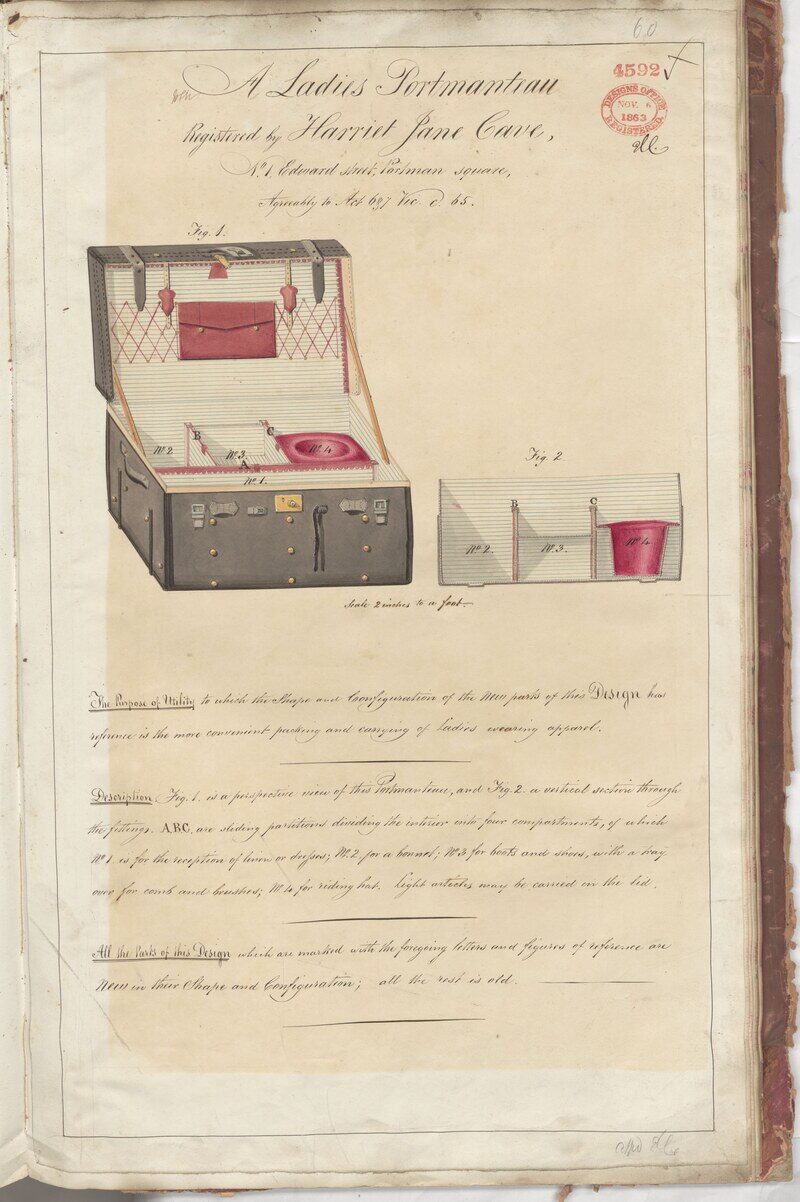 60
4592
DESIGNS OFFICE
NOV. 6
1863
REGISTERED
A Ladies Portmanteau
Registered by Harriet Jane Cave,
No. 1 Edward street, Portman square,
Agreeably to Act 6&7 Vic. c. 65.
Fig. 1.
No. 2
B
No. 3
C
No. 4
A
No. 1.
Fig. 2
B
C
No. 2.
No. 3.
No. 4
Scale 2 inches to a foot
The Purpose of Utility to which the Shape and Configuration of the New parts of this Design has
reference is the more convenient packing and carrying of Ladies wearing apparel.
Description Fig. 1. is a perspective view of this Portmanteau, and Fig. 2. a vertical section through
the fittings. A.B.C. are sliding partitions dividing the interior into four compartments, of which
No. 1 is for the reception of linen or dresses; No. 2. for a bonnet; No. 3 for boots and shoes, with a tray
over for comb and brushes; No. 4 for riding hat. Light articles may be carried in the lid.
All the Parts of this Design which are marked with the foregoing letters and figures of reference are
New in their Shape and Configuration; all the rest is old.